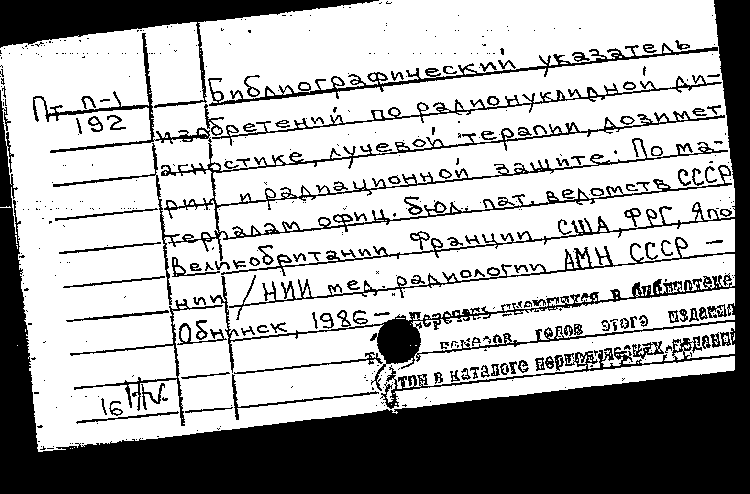 Пт П-1
192
Библиографический указатель
изобретений по радионуклидной ди-
агностике, лучевой терапии, дозимет
рии и радиационной защите: По ма-
териалам офиц. бюл. пат. ведомств СССР
Великобритании, Франции, США, ФРГ, Япо
нии / НИИ мед. радиологии АМН СССР —
Обнинск, 1986 —
Перечень имеющихся в библиотеке
номеров, годов этого издания
в каталоге периодических изданий
16